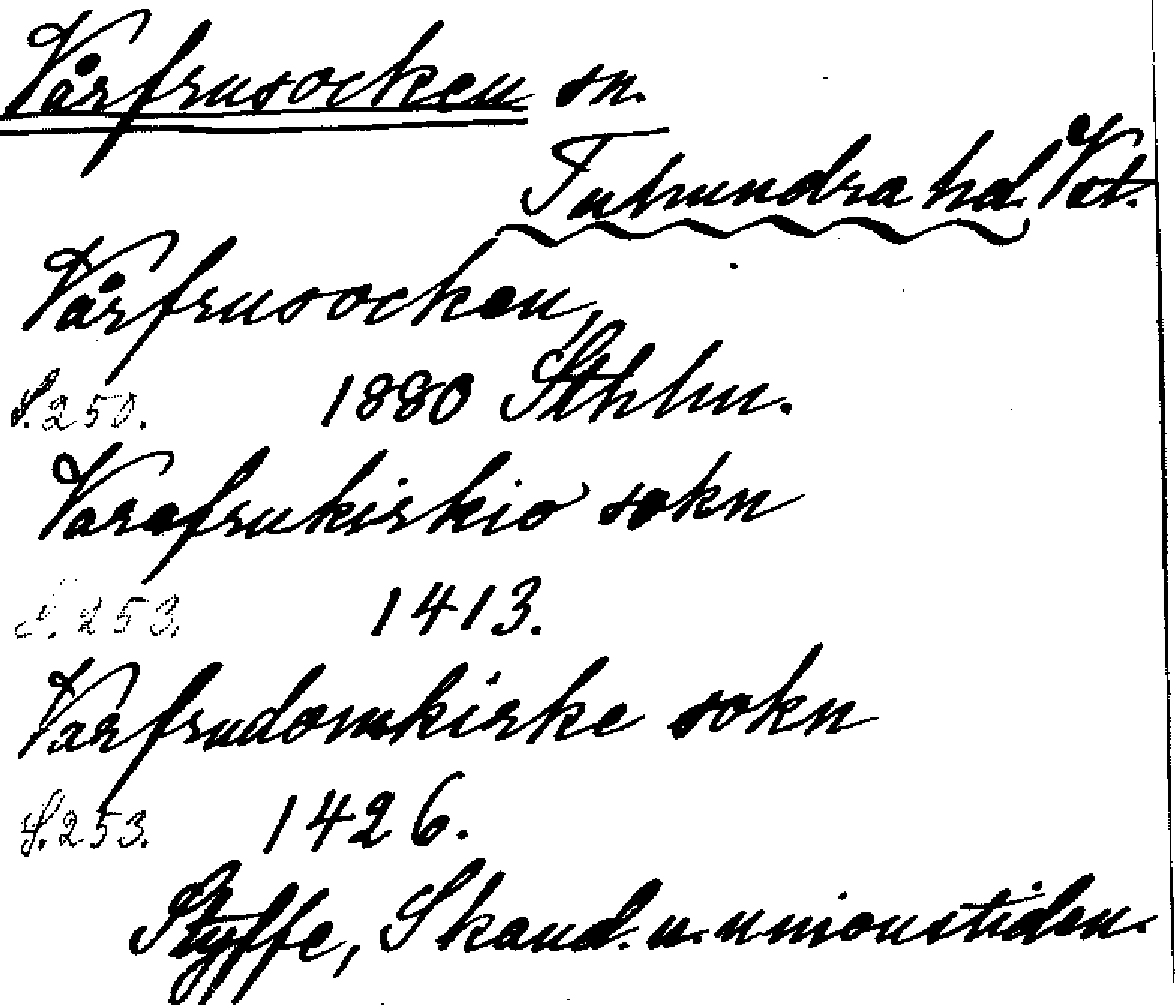 Vårfrusocken sn.
Tuhundra hd. Vst.
Vårfrusocken,
S. 250. 1880 Sthlm.
Varafrukirkio sokn
S. 253. 1413.
Varfrudomkirke sokn
S. 253. 1426.
Styffe, Skand. u. unionstiden.